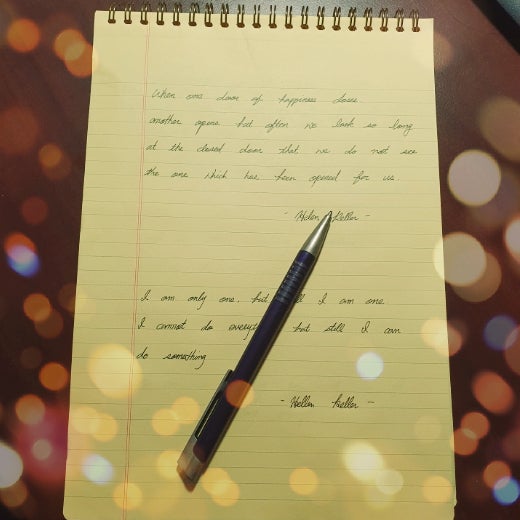 When one door of happiness closes.
another opens but often we look so long
at the closed door that we do not see
the one which has been opened for us.
- Helen Keller -
I am only one, but I am one.
I cannot do but still I can
do something
- Hellen Keller -